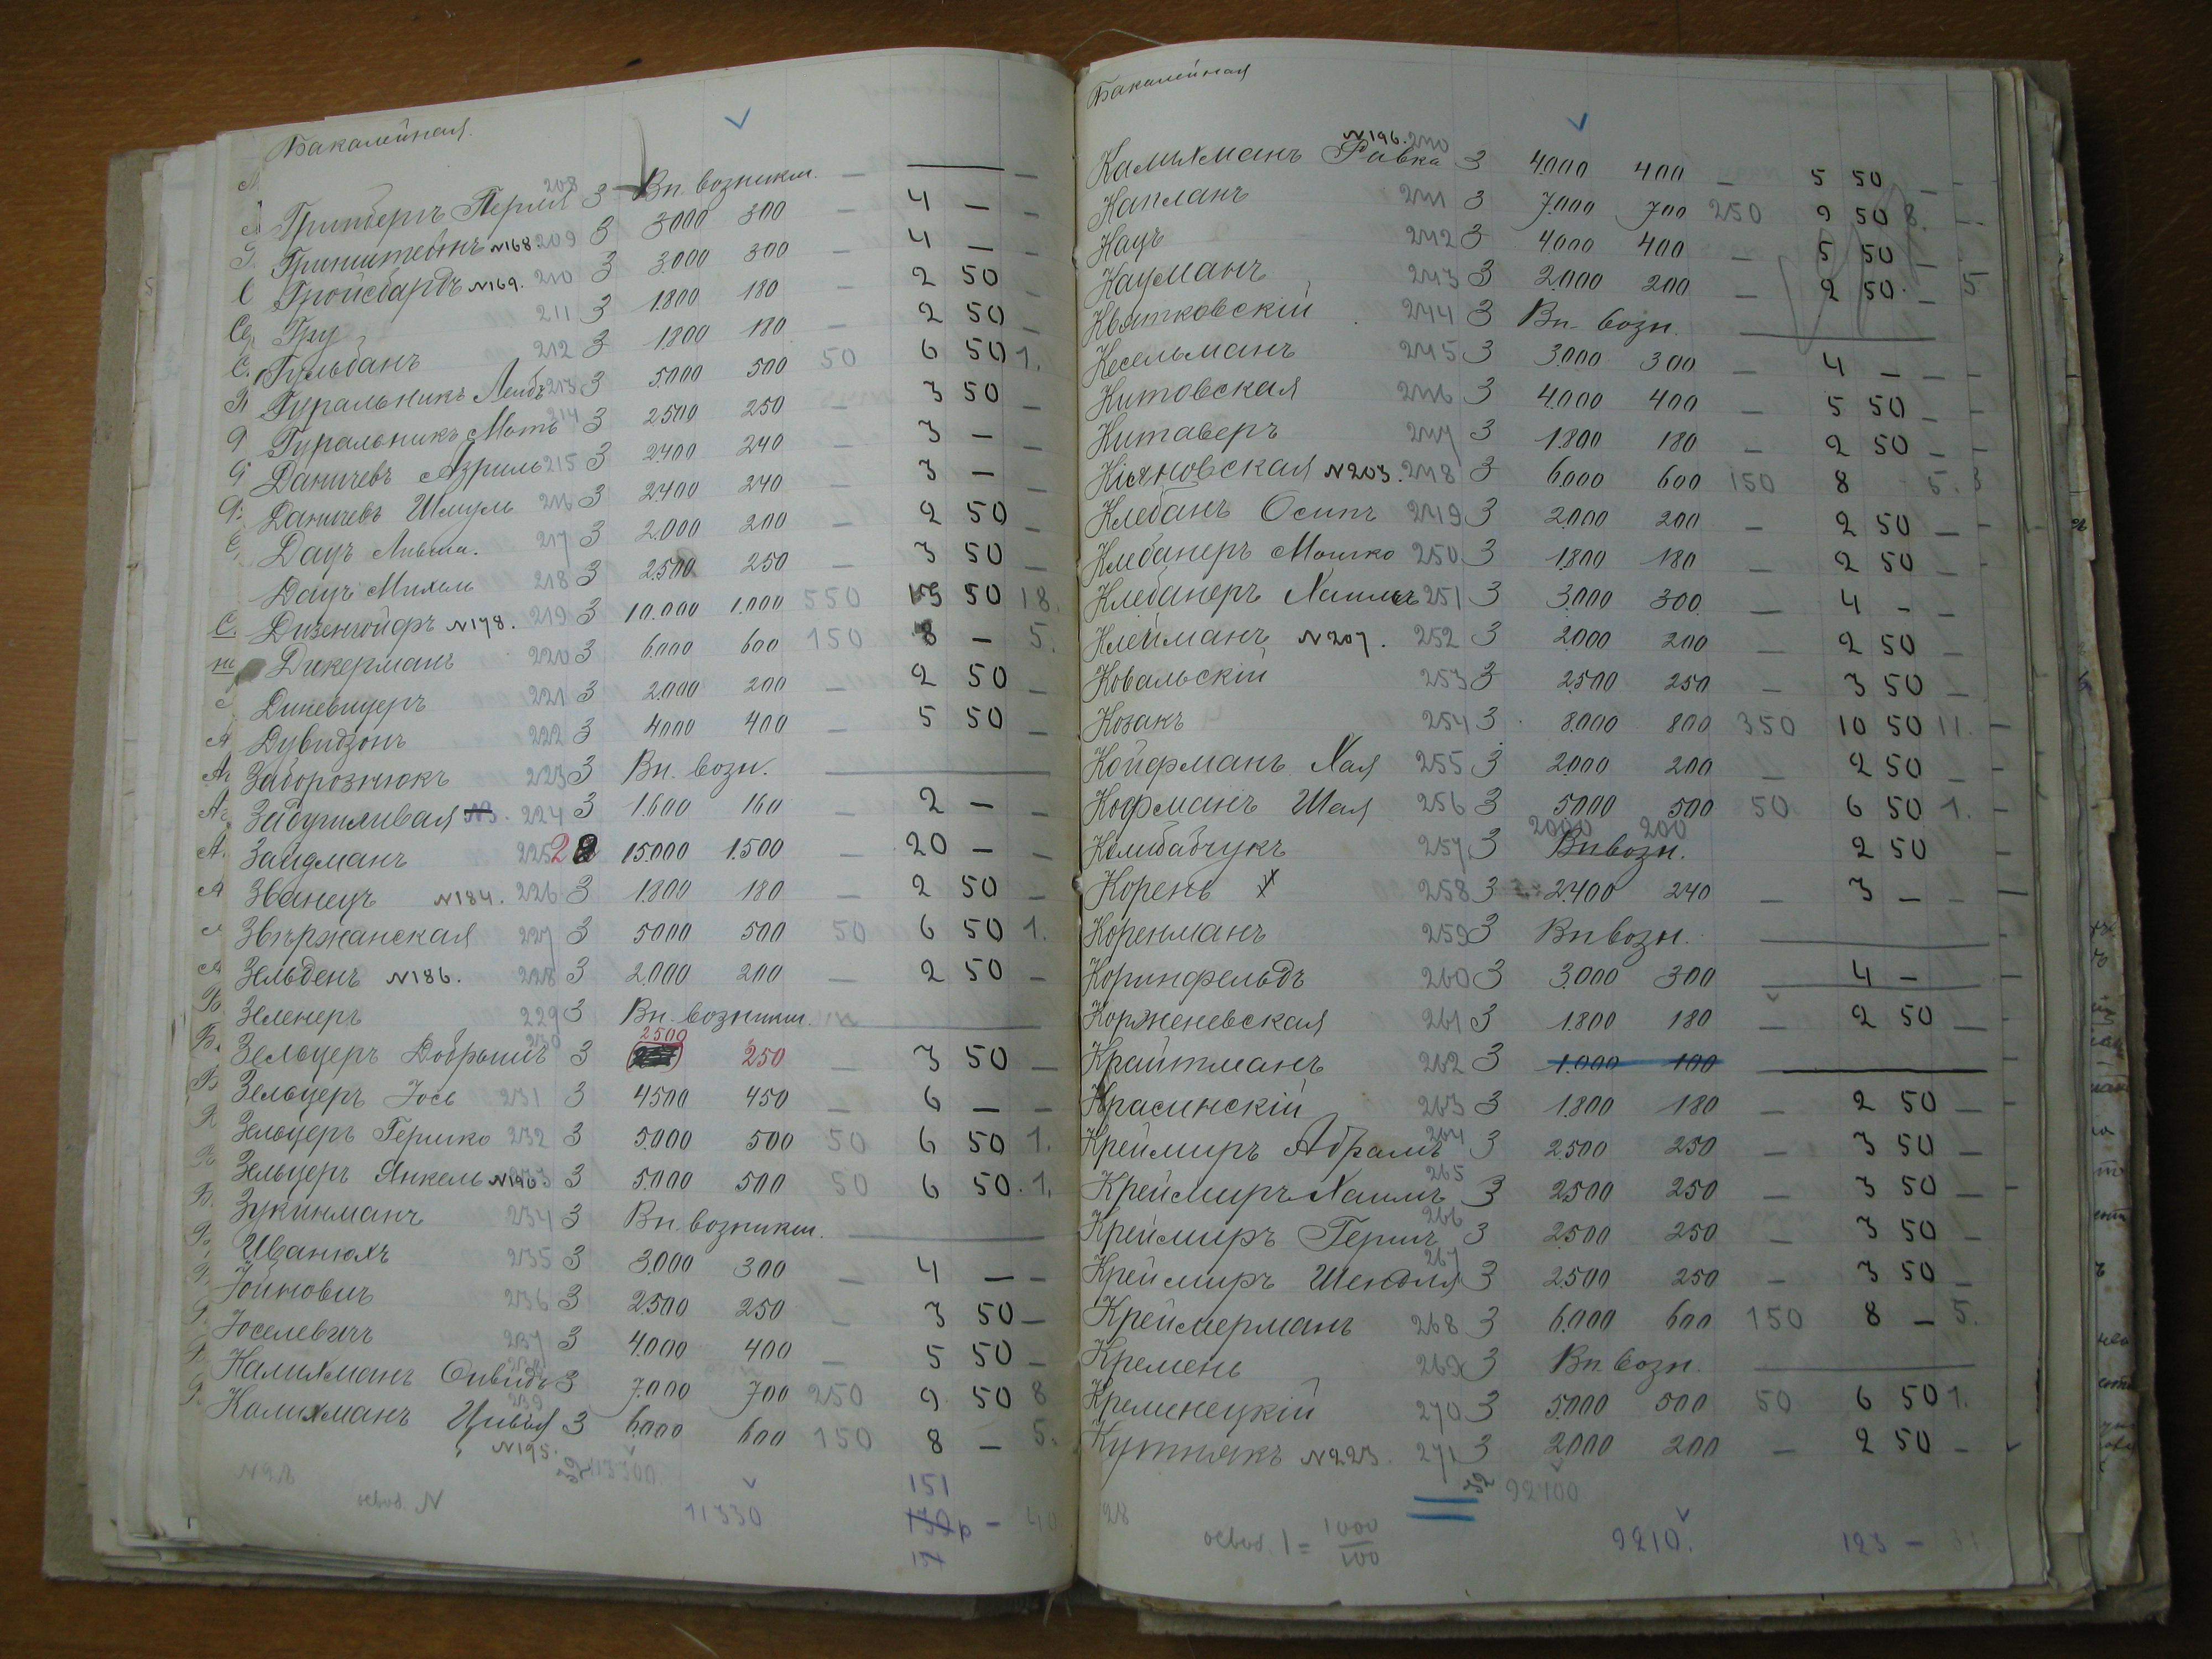 Бакалейная.
Гринбергъ Перля 208 3 Вп. возникш. —
Гринштейнъ №168. 209 3 3000 300 — 4 — —
Гройсбардъ №169. 210 3 3000 300 — 4 — —
Гру 211 3 1800 180 — 2 50 —
Гульбанъ 212 3 1800 180 — 2 50 —
Гуральникъ Лейбъ 213 3 5000 500 50 6 50 1.
Гуральникъ Моть 214 3 2500 250 — 3 50 —
Даничевъ Азриль 215 3 2400 240 — 3 — —
Даничевъ Шмуль 216 3 2400 240 — 3 — —
Дацъ Ливша. 217 3 2.000 200 — 2 50 —
Дацъ Михель 218 3 2500 250 — 3 50 —
Дизенгойфъ №178. 219 3 10.000 1.000 550 50 18.
Дикерманъ 220 3 6.000 600 150 8 — 5.
Диневицеръ 221 3 2.000 200 — 2 50 —
Дувидзонъ 222 3 4000 400 — 5 50 —
Заборознюкъ 223 3 Вп. возн.
Забутливая 224 3 1.600 160 — 2 — —
Зайдманъ 225 2 15.000 1.500 — 20 — —
Званецъ №184. 226 3 1.800 180 — 2 50 —
Звържанская 227 3 5000 500 50 6 50 1.
Зельденъ №186. 228 3 2.000 200 — 2 50 —
Зеленеръ 229 3 Вп. возникш.
Зельцеръ Добрышъ 230 3 2500 250 — 3 50 —
Зельцеръ Іось 231 3 4500 450 — 6 — —
Зельцеръ Гершко 232 3 5.000 500 50 6 50 1.
Зельцеръ Янкель №190 3 5.000 500 50 6 50. 1.
Зукинманъ 234 3 Вп. возникш.
Иванюхъ 235 3 3.000 300 — 4 — —
Іойновичъ 236 3 2500 250 — 3 50 —
Іоселевичъ 237 3 4.000 400 — 5 50 —
Калихманъ 238 3 7.000 700 250 9 50 8
Калихманъ Цивья 239 3 6.000 600 150 8 — 5.
№195.
113300.
освоб. N
151
11330 — 40
Бакалейная
Калихманъ Равка №196. 240 3 4.000 400 — 5 50 —
Капланъ 241 3 7.000 700 250 9 50 8.
Кацъ 242 3 4000 400 — 5 50 —
Кацманъ 243 3 2.000 200 — 2 50 — 5
Квятковскій 244 3 Вп. возн.
Кесельманъ 245 3 3.000 300 — 4 — —
Китовская 246 3 4.000 400 — 5 50 —
Китаверъ 247 3 1.800 180 — 2 50 —
Кіяновская №203. 248 3 6.000 600 150 8 5.
Клебанъ Осипъ 249 3 2.000 200 — 2 50 —
Клебанеръ Мошко 250 3 1.800 180 — 2 50 —
Клебанеръ Хаимъ 251 3 3.000 300 — 4 — —
Клейманъ №207. 252 3 2.000 200 — 2 50 —
Ковальскій 253 3 2.500 250 — 3 50 —
Козакъ 254 3 8.000 800 350 10 50 11.
Койфманъ Хая 255 3 2.000 200 — 2 50 —
Кофманъ Шая 256 3 5.000 500 50 6 50 1.
2000 200
Колибабчукъ 257 3 Вп возн. 2 50 —
Корень 258 3 2.400 240 — 3 — —
Коренманъ 259 3 Вп возн.
Коринфельдъ 260 3 3.000 300 4 —
Корженевская 261 3 1.800 180 — 2 50 —
Крайтманъ 262 3 1.000 100
Красинскій 263 3 1.800 180 — 2 50 —
Креймиръ Абрамъ 264 3 2500 250 — 3 50 —
Креймиръ Хаимъ 265 3 2500 250 — 3 50 —
Креймиръ Гершъ 266 3 2500 250 — 3 50 —
Креймиръ Шендля 267 3 2500 250 — 3 50 —
Креймерманъ 268 3 6.000 600 150 8 — 5.
Кремень 269 3 Вп. возн.
Кременецкій 270 3 5.000 500 50 6 50 1.
Кутнякъ №223. 271 3 2.000 200 — 2 50 —
92100
28 освоб. 1 = 1000
100
9210. 123 — 31